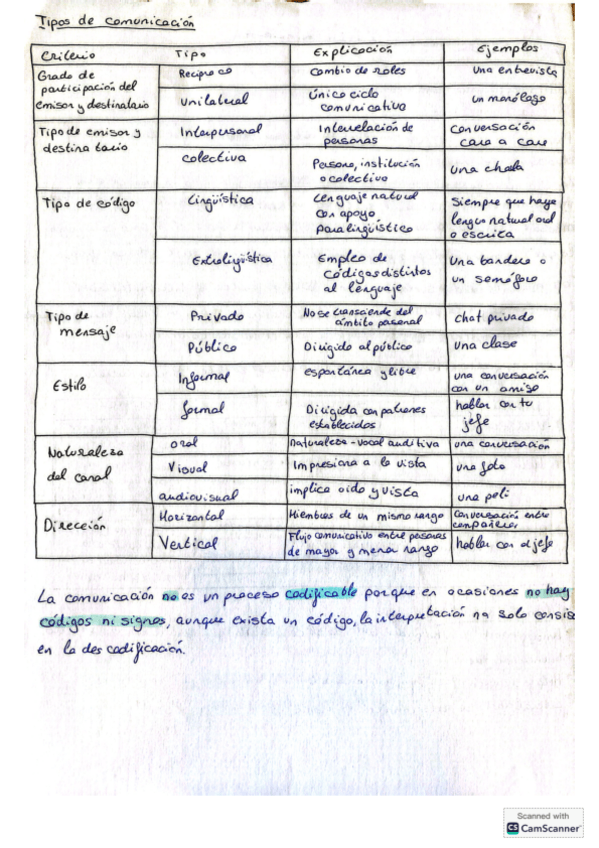 Tipos de comunicación
Criterio Tipo Explicación Ejemplos
Grado de participación del emisor y destinatario
Recíproco Cambio de roles una entrevista
Unilateral Único ciclo comunicativo un monólogo
Tipo de emisor y destinatario
Interpersonal Interrelación de personas Conversación cara a cara
Colectiva Persona, institución o colectivo una charla
Tipo de código
Lingüística Lenguaje natural con apoyo paralingüístico Siempre que haya lengua natural oral o escrita
Extralingüística Empleo de códigos distintos al lenguaje Una bandera o un semáforo
Tipo de mensaje
Privado No se trasciende del ámbito personal chat privado
Público Dirigido al público una clase
Estilo
Informal espontánea y libre una conversación con un amigo
formal Dirigida con patrones establecidos hablar con tu jefe
Naturaleza del canal
oral naturaleza-vocal auditiva una conversación
Visual Impresiona a la vista una foto
audiovisual implica oido y vista una peli
Dirección
Horizontal Miembros de un mismo rango Conversación entre compañeros
Vertical Flujo comunicativo entre personas de mayor y menor rango hablar con el jefe
La comunicación no es un proceso codificable porque en ocasiones no hay
códigos ni signos, aunque exista un código, la interpretación no solo consis
en la descodificación.
Scanned with
CS CamScanner